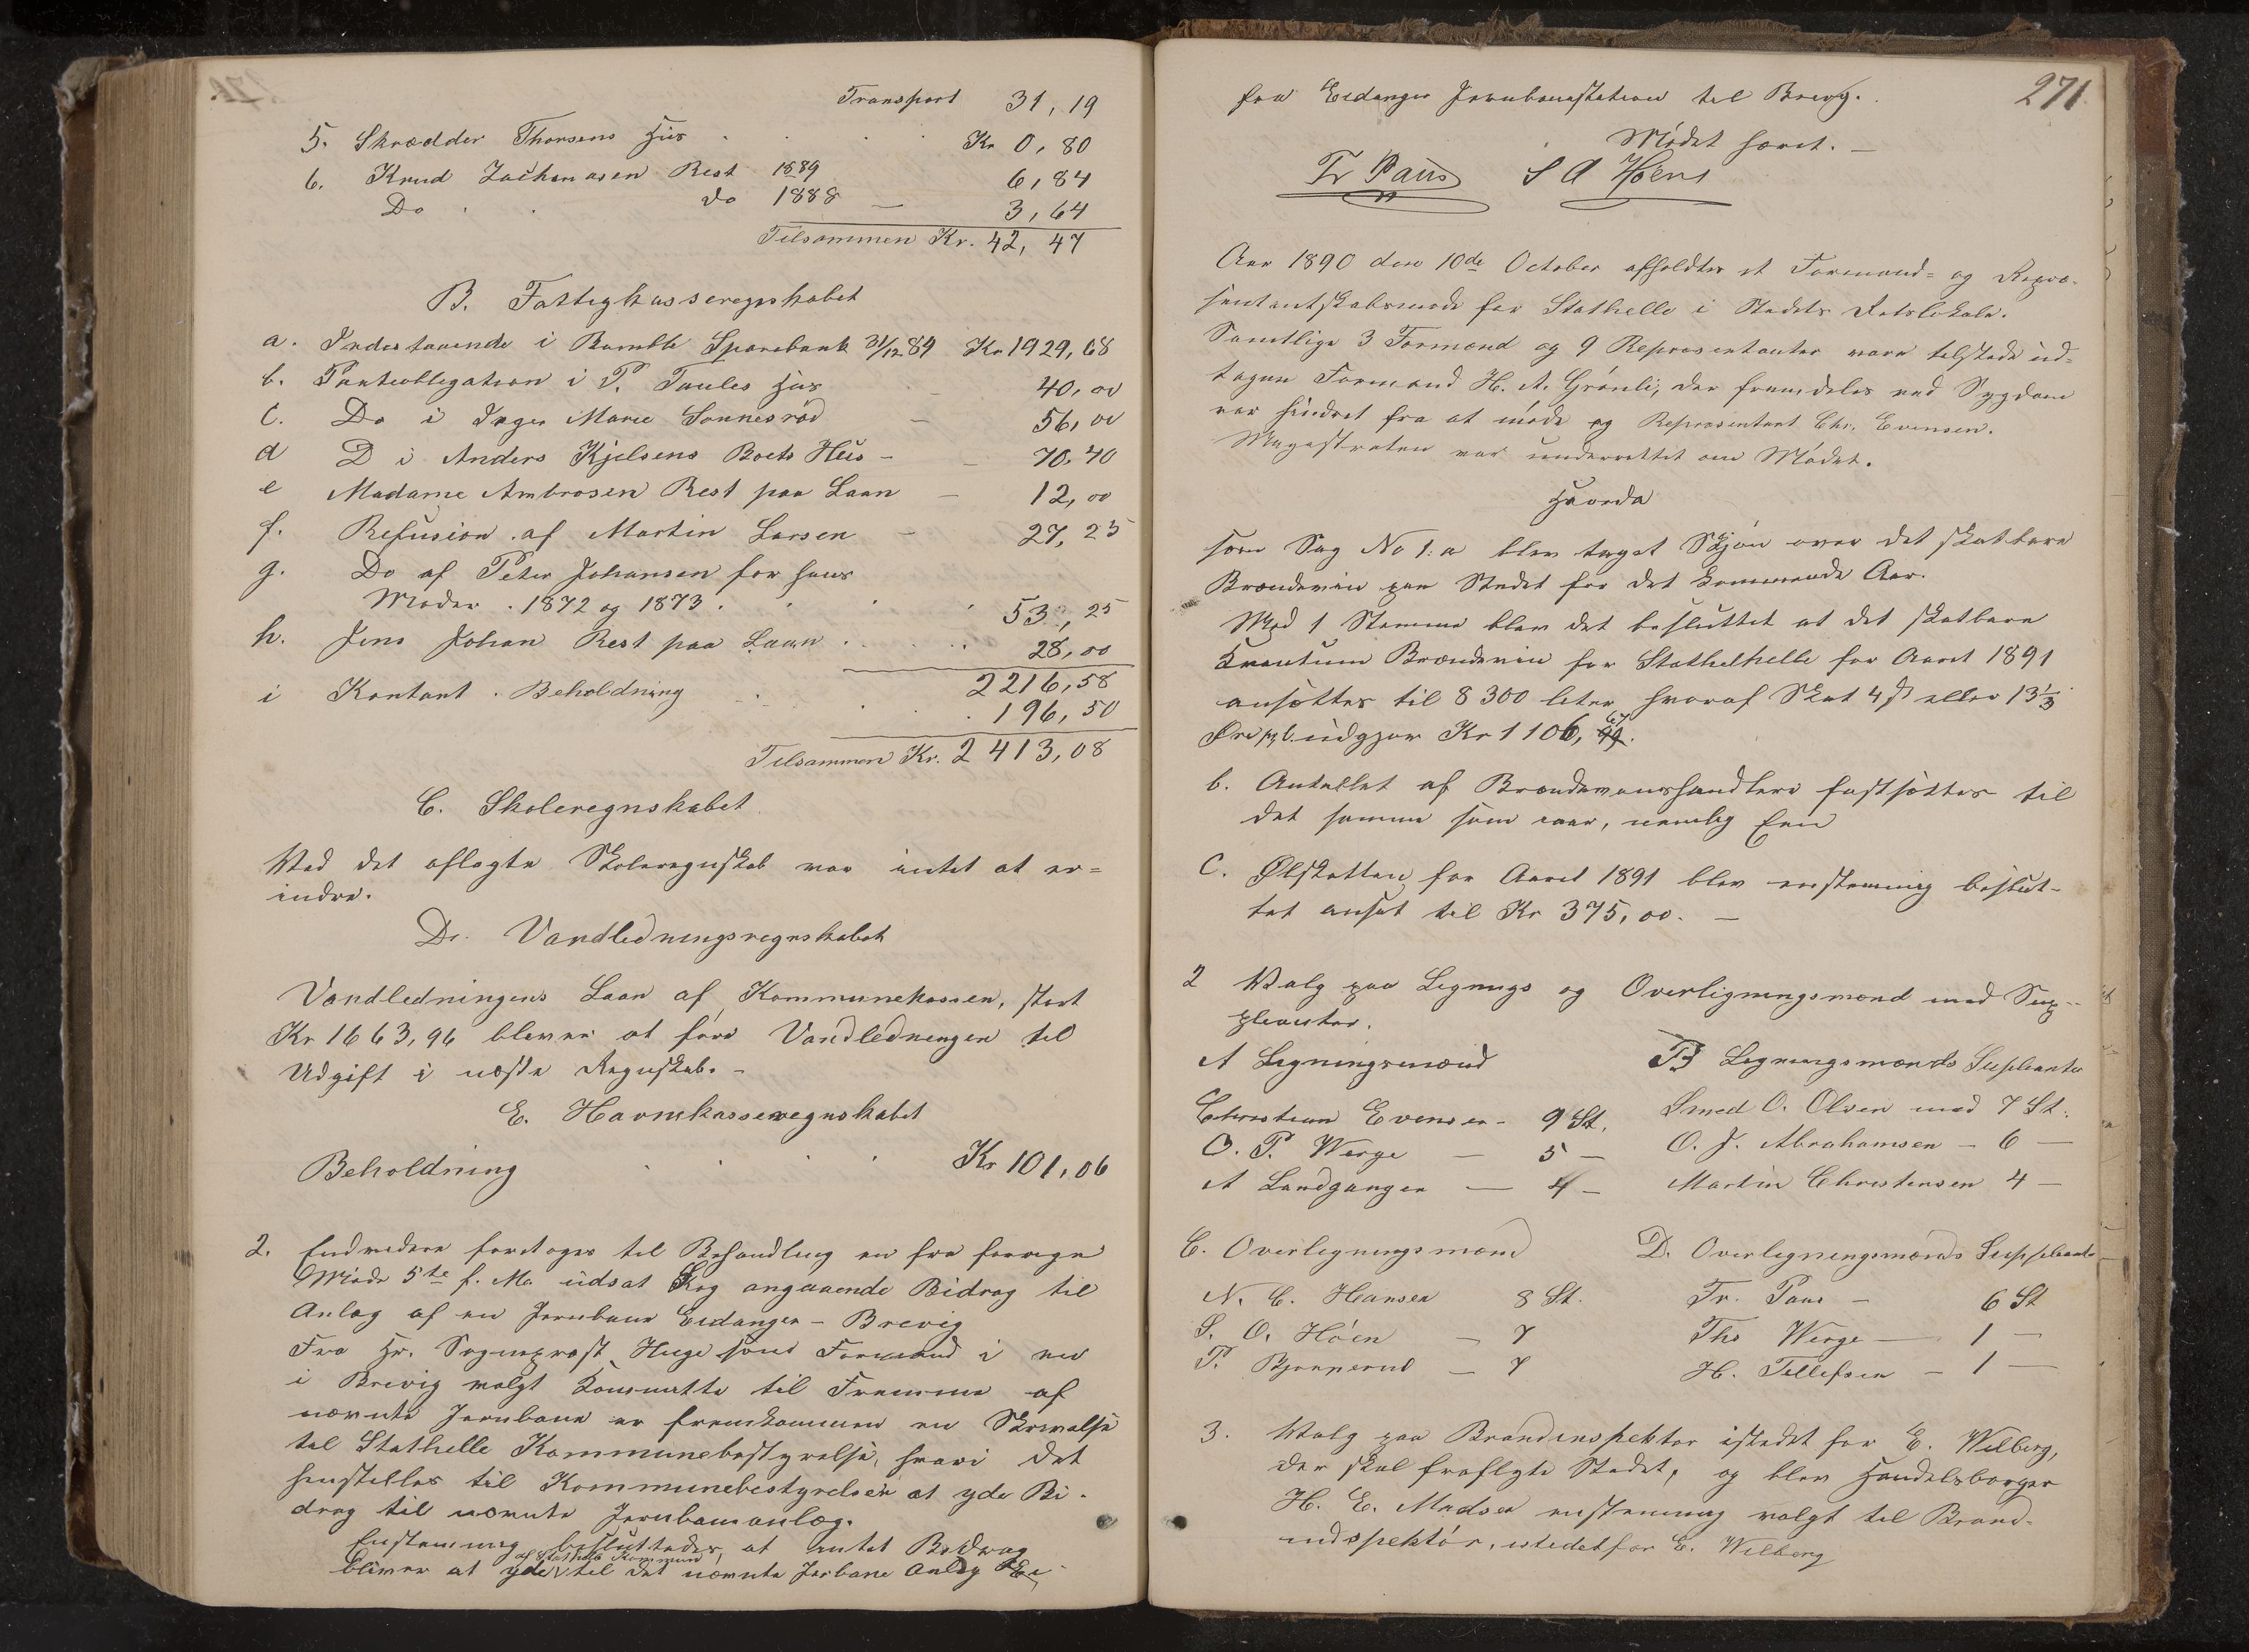 Transport 31,19
5. Skrædder Thorsens Hus Kr 0,80
6. Knud Zachariasen Rest 1889 6,84
Do do 1888 — 3,64
Tilsammen Kr. 42,47
B. Fattigkasseregnskabet
a. Indestaaende i Bamble Sparebank 31/12 89 Kr 1929,68
b. Panteobligation i P. Taules Hus 40,00
c. Do i Inger Marie Sonnesrød — 56,00
d D i Anders Kjelsens Boets Hus — 70,40
e Madame Ambrosen Rest paa Laan — 12,00
f. Refusion af Martin Larsen — 27,25
g. Do af Peter Johansen for hans
Moder . 1872 og 1873 . 53,25
h. Jens Johan Rest paa Laan . 28,00
2216,58
i Kontant . Beholdning 196,50
Tilsammen Kr. 2413,08
C. Skoleregnskabet
Ved det aflagte Skoleregnskab var intet at er=
indre.
D. Vandledningsregnskabet
Vandledningens Laan af Kommunekassen, stort
Kr 1663,96 bliver at føre Vandledningen til
Udgift i næste Regnskab. —
E. Havnekasseregnskabet
Beholdning Kr 101,06
2. Endvidere foretoges til Behandling en fra forrige
Møde 5te f. M. udsat Sag angaaende Bidrag til
Anlæg af en Jernbane Eidanger – Brevig
Fra Hr. Sogneprest Huge som Formand i en
i Brevig valgt Committe til Fremme af
nævnte Jernbane er fremkommen en Skrivelse
til Stathelle Kommunebestyrelse, hvori det
henstilles til Kommunebestyrelsen at yde Bi-
drag til nævnte Jernbaneanlæg.
Enstemmig besluttedes, at intet Bidrag
af Stathelle Kommune
bliver at yde til det nævnte Jerbane Anlæg
271
fra Eidanger Jernbanestation til Brevig.
Mødet hævet. —
Fr Paus S O Høen
Aar 1890 den 10de October afholdtes et Formand= og Repræ-
sentantskabsmøde for Stathelle i Stedets Retslokale.
Samtlige 3 Formænd og 9 Repræsentanter vare tilstede und=
tagen Formand H. A. Grønli, der fremdeles ved Sygdom
var hindret fra at møde og Repræsentant Chr. Evensen.
Magistraten var underrettet om Mødet.
Hvorda
som Sag No 1. a blev taget Skjøn over det skatbare
Brændevin paa Stedet for det kommende Aar.
Med 1 Stemme blev det besluttet at det skatbare
Kvantum Brændevin for Stathelhelle for Aaret 1891
ansættes til 8300 liter hvoraf Skat 4 ß eller 13 1/3
Øre pr l. udgjør Kr 1106, 67.
b. Antallet af Brændevinshandlere fastsættes til
det samme som iaar, nemlig Een
C. Ølskatten for Aaret 1891 blev enstemmig beslut-
tet ansat til Kr 375,00. —
2 Valg paa Lignings og Overligningsmænd med Sup-
pleanter.
A Ligningsmænd
Christian Evensen – 9 St.
O. P. Werge — 5 —
A Landgangen — 4 —
B Ligningsmænds Supleanter
Smed O. Olsen med 7 St.
O. J. Abrahamsen – 6 —
Martin Christensen 4 —
C. Overligningsmænd
N. C. Hansen 8 St.
S. O. Høen — 7
P. Bjerperud — 7
D. Overligningsmænds Suppleanter
Fr. Paus — 6 St
Ths Werge — 1 —
H. Tellefsen — 1 —
3. Valg paa Brandinspektør istedet for E. Wilberg,
der skal fraflytte Stedet, og blev Handelsborger
H. E. Madsen enstemmig valgt til Brand-
indspektør, istedetfor E. Wilberg